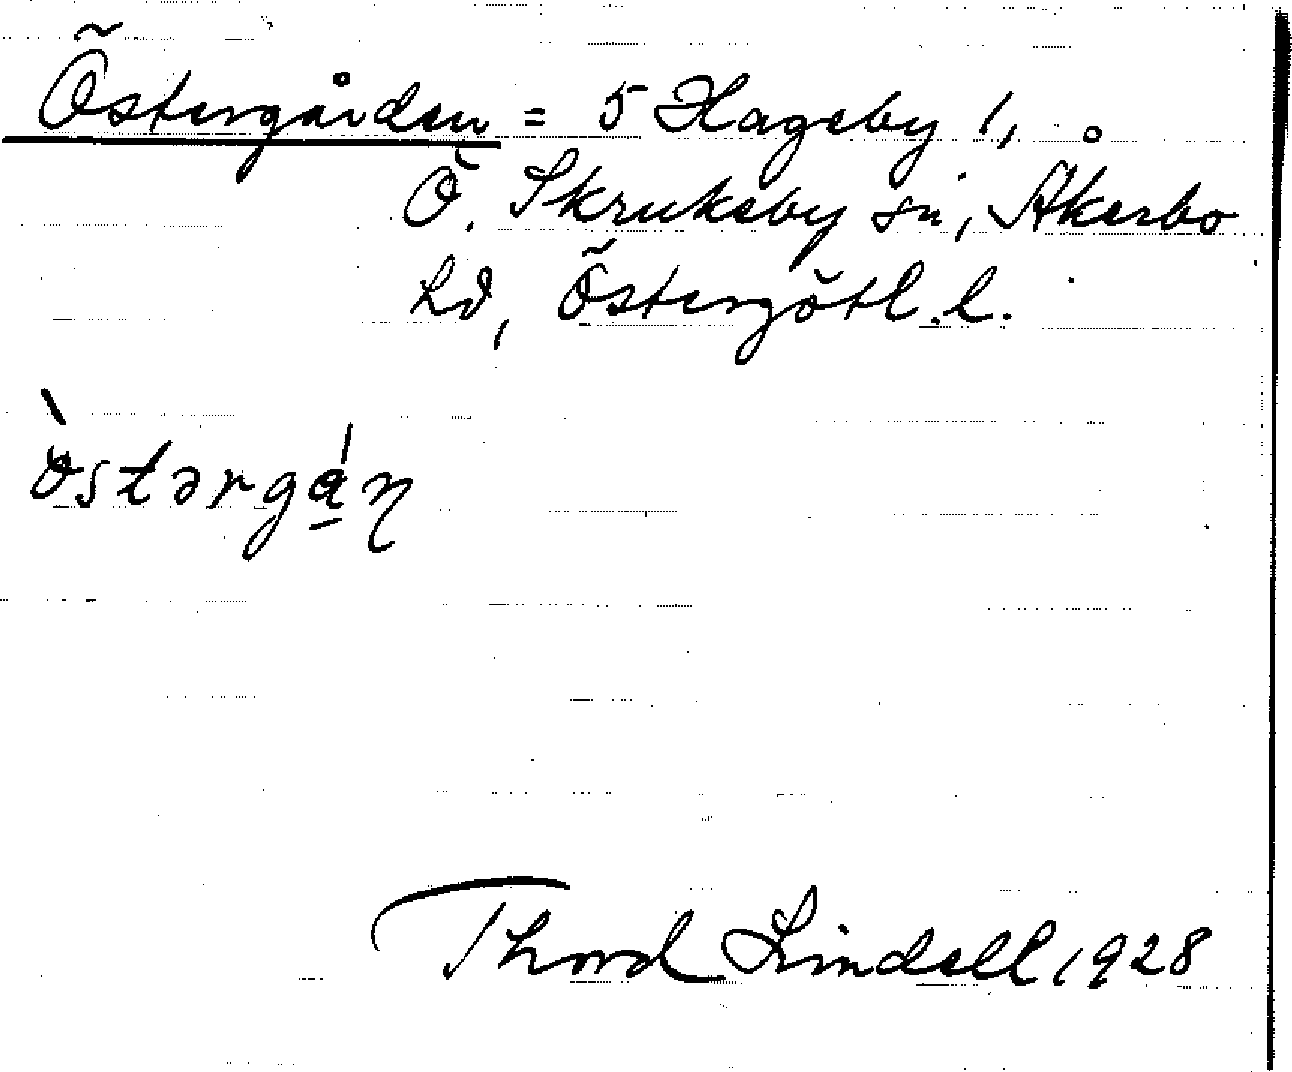 Östergården = 5 Hageby 1,
Ö. Skrukeby sn, Åkerbo
hd, Östergötl. l.
ö̀stərgá̱ɳ
Thord Lindell 1928